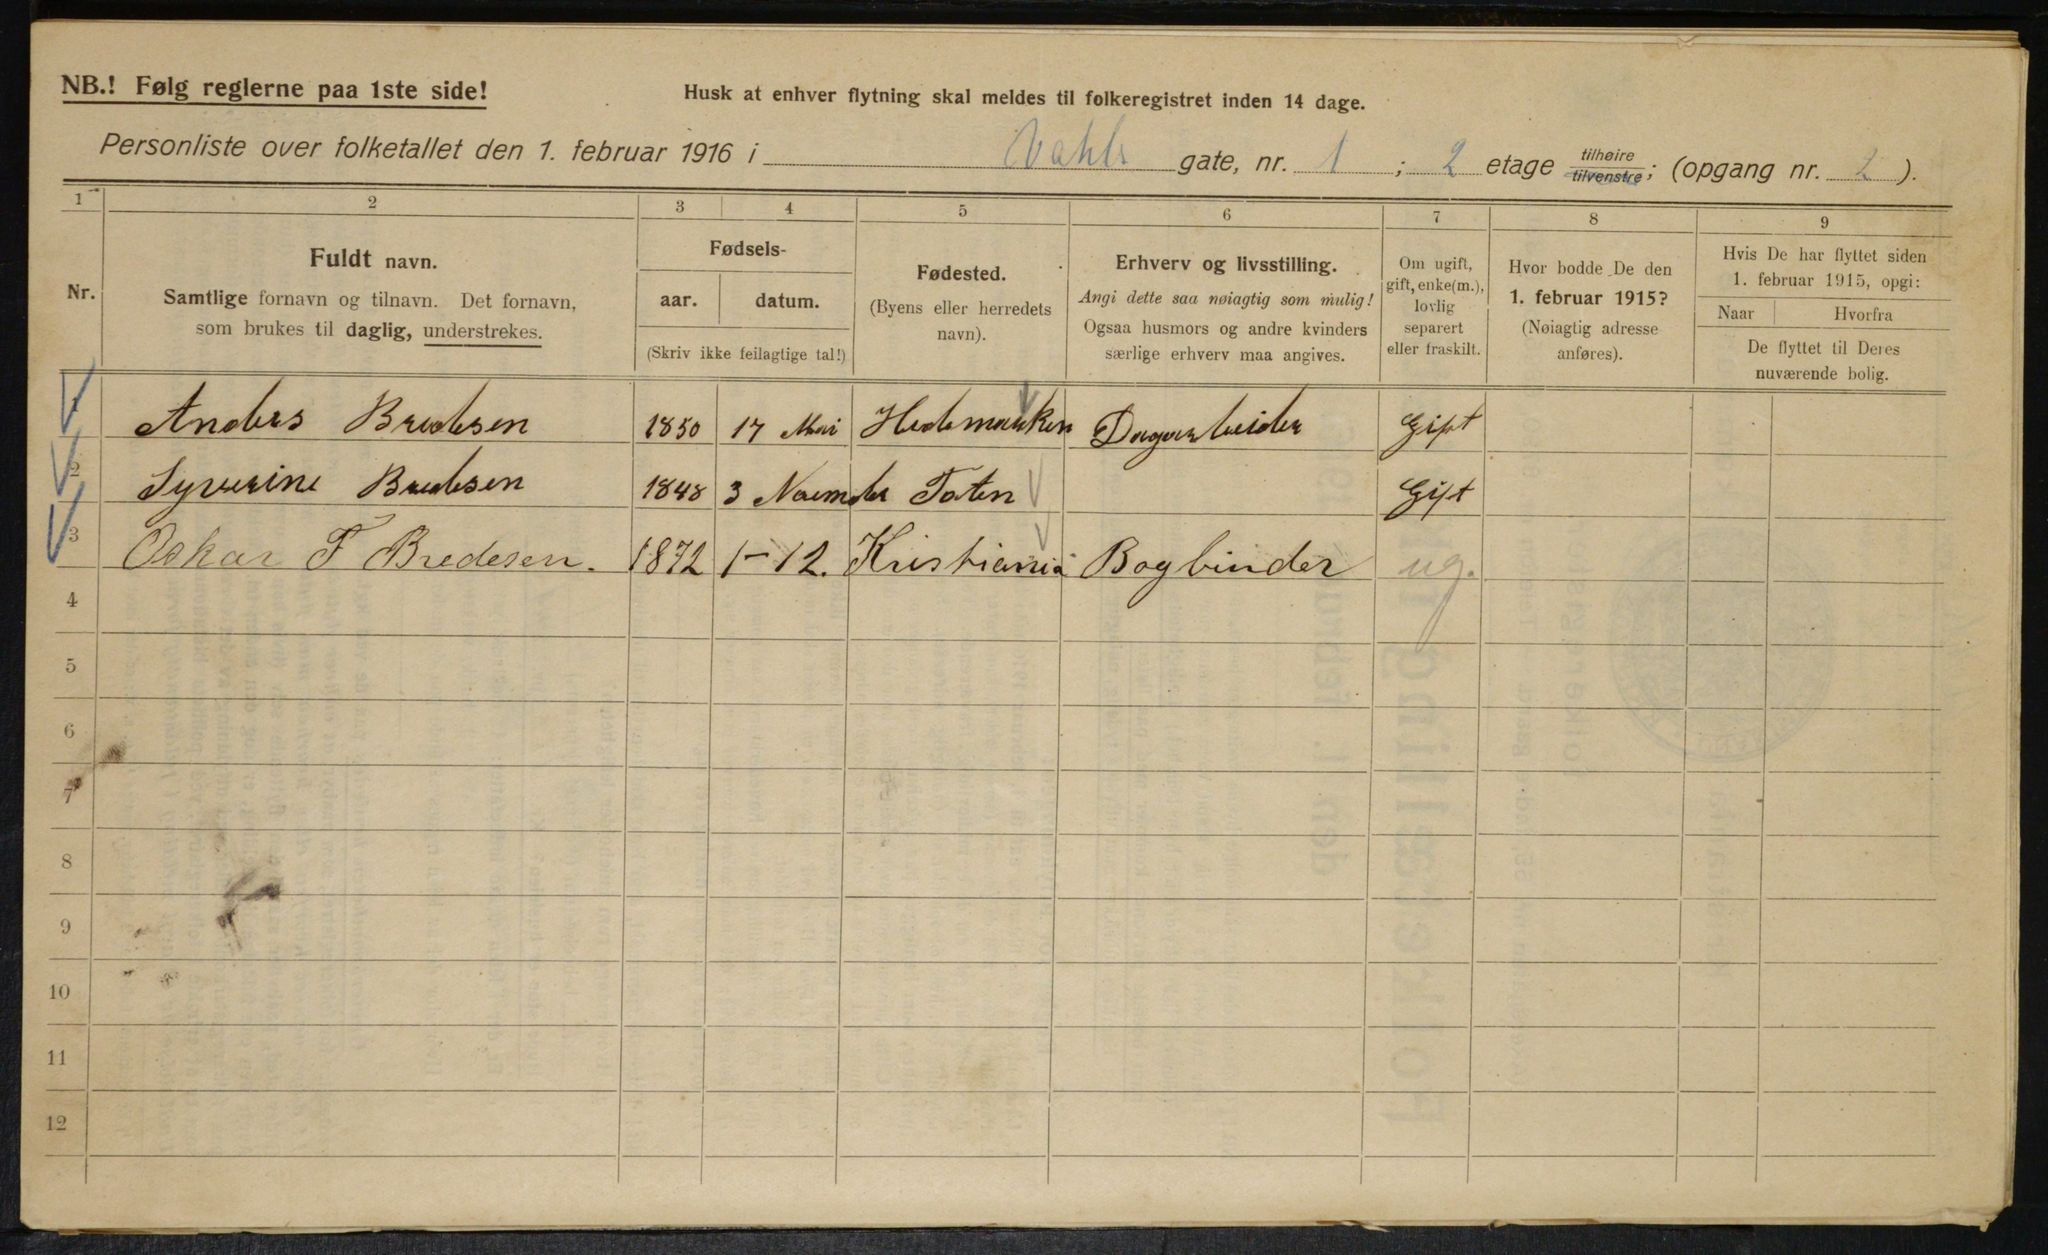 NB.! Følg reglerne paa 1ste side!
Husk at enhver flytning skal meldes til folkeregistret inden 14 dage.
Personliste over folketallet den 1. februar 1916 i Vahls gate, nr. 1 ; 2 etage tilhøire tilvenstre; (opgang nr. 2 ).
1 2 3 4 5 6 7 8 9
Nr.
Fuldt navn.
Samtlige fornavn og tilnavn. Det fornavn,
som brukes til daglig, understrekes.
Fødsels-
aar. datum.
(Skriv ikke feilagtige tal!)
Fødested.
(Byens eller herredets
navn).
Erhverv og livsstilling.
Angi dette saa nøiagtig som mulig!
Ogsaa husmors og andre kvinders
særlige erhverv maa angives.
Om ugift,
gift, enke(m.),
lovlig
separert
eller fraskilt.
Hvor bodde De den
1. februar 1915?
(Nøiagtig adresse
anføres).
Hvis De har flyttet siden
1. februar 1915, opgi:
Naar Hvorfra
De flyttet til Deres
nuværende bolig.
1 Anders Bredesen 1850 17 Mai Hedemarken Dagarbeider Gift
2 Syverine Bredesen 1848 3 Novmber Toten Gift
3 Oskar F Bredesen. 1872 1-12. Kristiania Bogbinder ug.
4
5
6
7
8
9
10
11
12